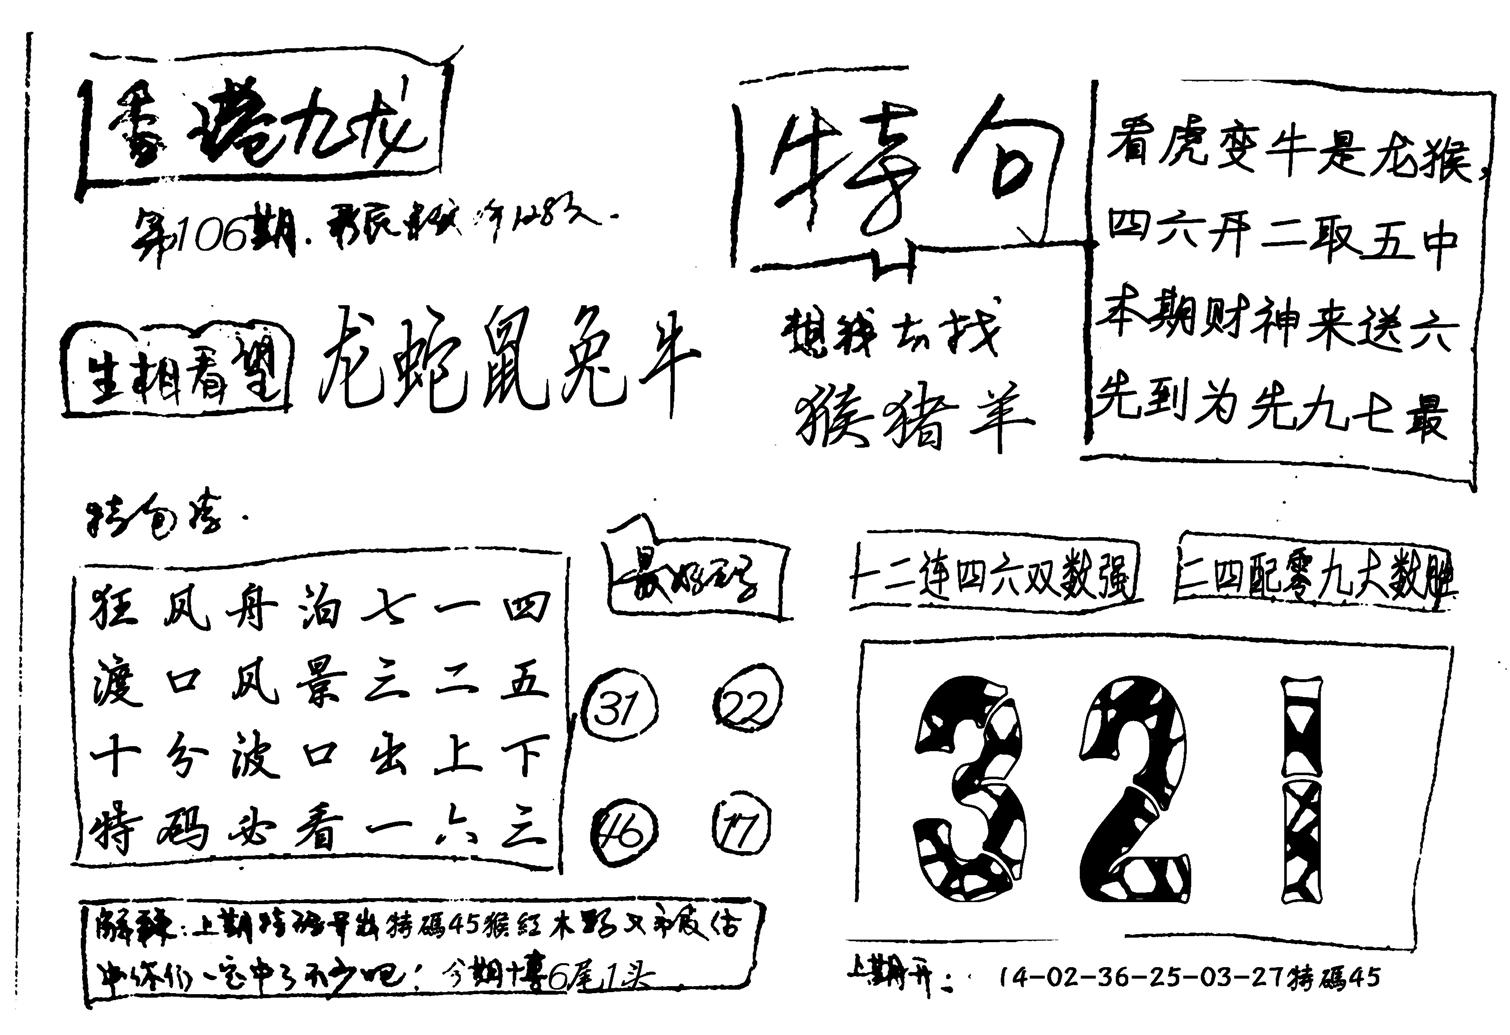 香港九龙
第106期.
生相看望
龙蛇鼠兔牛
特句
想钱去找
猴猪羊
看虎变牛是龙猴,
四六开二取五中
本期财神来送六
先到为先九七最
特包
狂风舟泊七一四
渡口风景三二五
十分波口出上下
特码必看一六三
最好
31 22
46 17
十二连四六双数强
二四配零九大数胜
321
解:上期特码开出特碼45猴紅木
中你们一定中了不少吧!今期博6尾1头
上期开: 14-02-36-25-03-27特碼45